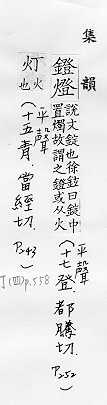 集韻
鐙燈 說文錠也徐鉉曰錠中置燭故謂之鐙或从火 平聲(十七登.都騰切.P252)
灯 火也 平聲(十五青.當經切.P243)
丁(四)p.558